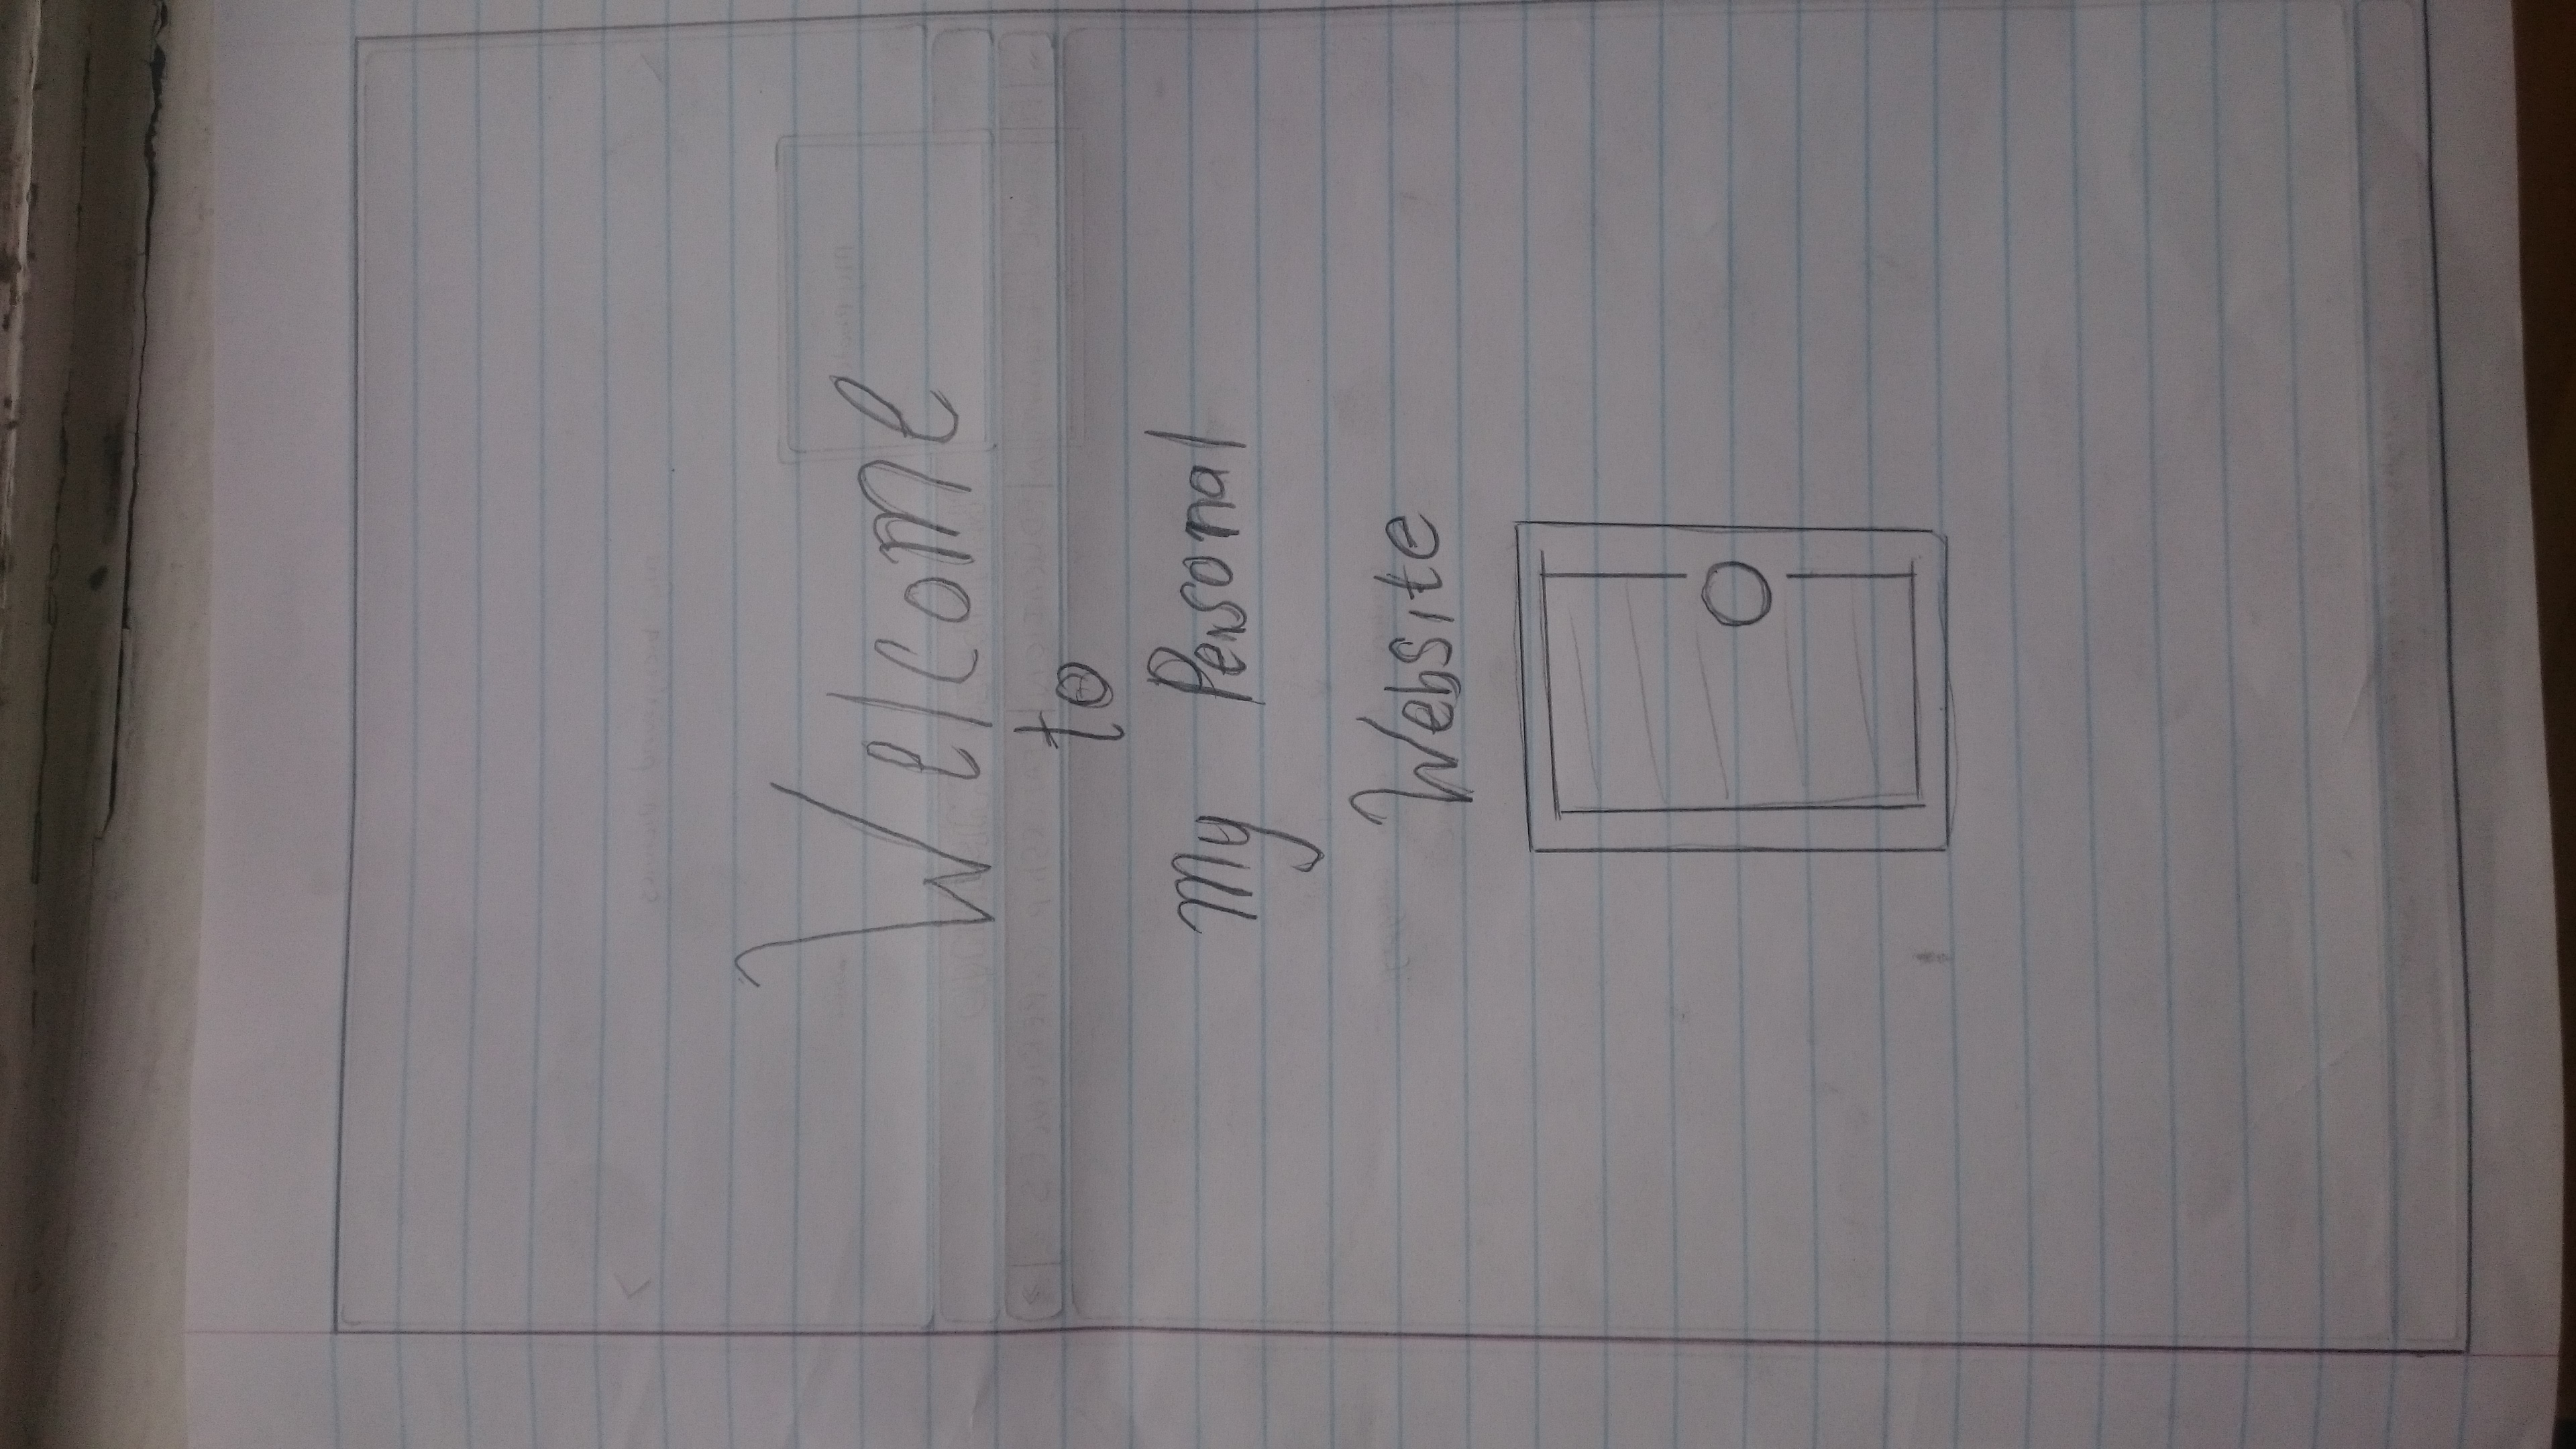 Welcome
to
My Personal
Website